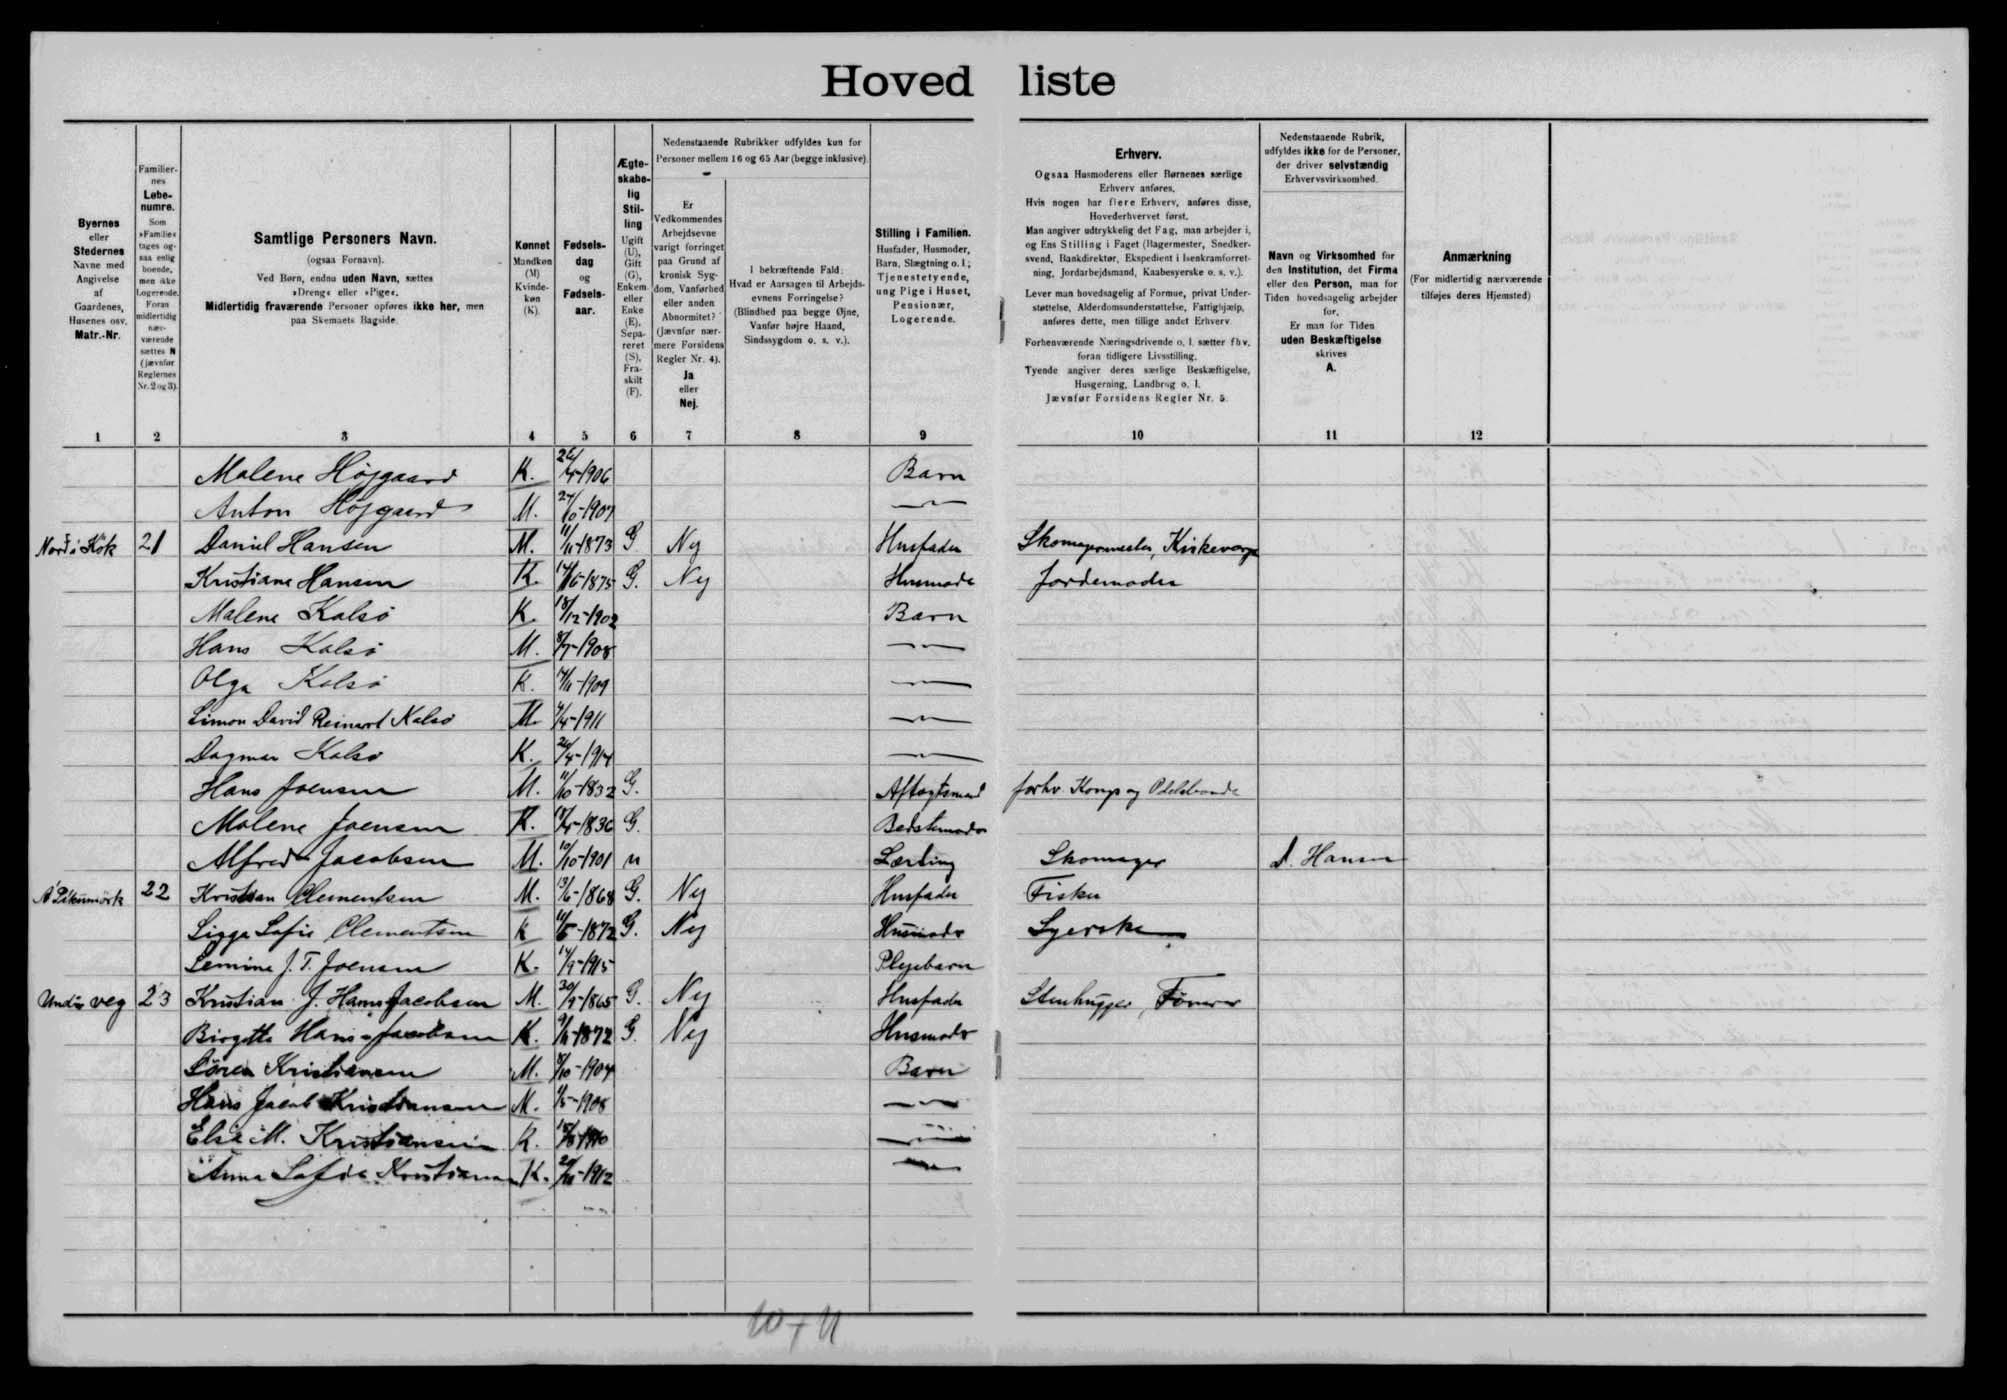 Hovedliste
Byernes eller Stedernes Navne med Angivelse af Gaardenes, Husenes osv. Matr.-Nr.
Familiernes Løbenumre. Som »Familie« tages ogsaa enlig boende, men ikke Logerende. Foran midlertidig nærværende sættes N (jævnfør Reglernes Nr. 2 og 3).
Samtlige Personers Navn. (ogsaa Fornavn). Ved Børn, endnu uden Navn, sættes »Dreng« eller »Pige«. Midlertidig fraværende Personer opføres ikke her, men paa Skemaets Bagside.
Kønnet Mandkøn (M) Kvindekøn (K).
Fødselsdag og Fødselsaar.
Ægteskabelig Stilling Ugift (U), Gift (G), Enkem. eller Enke (E), Separeret (S), Fraskilt (F).
Nedenstaaende Rubrikker udfyldes kun for Personer mellem 16 og 65 Aar (begge inklusive).
Er Vedkommendes Arbejdsevne varigt forringet paa Grund af kronisk Sygdom, Vanførhed eller anden Abnormitet? (Jævnfør nærmere Forsidens Regler Nr. 4). Ja eller Nej.
I bekræftende Fald: Hvad er Aarsagen til Arbejdsevnens Forringelse? (Blindhed paa begge Øjne, Vanfør højre Haand, Sindssygdom o. s. v.).
Stilling i Familien. Husfader, Husmoder, Barn, Slægtning o. l.; Tjenestetyende, ung Pige i Huset, Pensionær, Logerende.
Erhverv. Ogsaa Husmoderens eller Børnenes særlige Erhverv anføres. Hvis nogen har flere Erhverv, anføres disse, Hovederhvervet først. Man angiver udtrykkelig det Fag, man arbejder i, og Ens Stilling i Faget (Bagermester, Snedkersvend, Bankdirektør, Ekspedient i Isenkramforretning, Jordarbejdsmand, Kaabesyerske o. s. v.). Lever man hovedsagelig af Formue, privat Understøttelse, Alderdomsunderstøttelse, Fattighjælp, anføres dette, men tillige andet Erhverv. Forhenværende Næringsdrivende o. l. sætter fhv. foran tidligere Livsstilling. Tyende angiver deres særlige Beskæftigelse, Husgerning, Landbrug o. l. Jævnfør Forsidens Regler Nr. 5.
Nedenstaaende Rubrik, udfyldes ikke for de Personer, der driver selvstændig Erhvervsvirksomhed.
Navn og Virksomhed for den Institution, det Firma eller den Person, man for Tiden hovedsagelig arbejder for. Er man for Tiden uden Beskæftigelse skrives A.
Anmærkning (For midlertidig nærværende tilføjes deres Hjemsted)
1 2 3 4 5 6 7 8 9 10 11 12
Malene Højgaard K. 1906 Barn
Anton Højgaard M. 1907
21 Daniel Hansen M. 11/11-1873 G Nej Husfader Skomagermester, Kirkeværge
Kristiane Hansen K. 1875 G. Nej Husmode Jordemoder
Malene Kalsø K. 18/12-1902 Barn
Hans Kalsø M. 8/7-1908
Olga Kalsø K. 1909
Simon David Reinert Kalsø M. 1911
Dagmar Kalsø K. 1914
Hans Joensen M. 11/10-1832 G. Aftagtsmand forhv. Kongs og Odelsbonde
Malene Joensen K. 1836 G. Bedstemoder
Alfred Jacobsen M. 10/10-1901 u Lærling Skomager D. Hansen
22 Kristian Clementsen M. 13/6-1868 G. Nej Husfader Fisker
Sigga Sofie Clementsen K 1872 G. Nej Husmoder Syerske
Semine J. T. Joensen K. 14/9-1915 Plejebarn
Undir veg 23 Kristian J. Hans Jacobsen M. 30/9-1865 G. Nej Husfader Stenhugger, Tømrer
Birgitte Hans-Jacobsen K. 1872 G. Nej Husmoder
Sören Kristiansen M. 8/10-1904 Barn
Hans Jacob Kristiansen M. 1908
Else M. Kristiansen K. 1910
Anna Sofie Kristiansen K. 1912
10 + 11